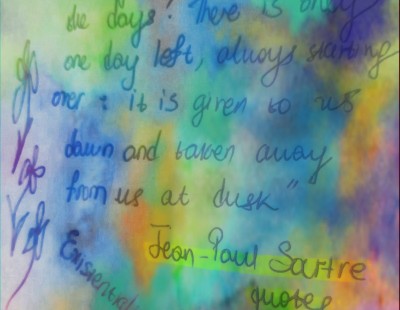 the days! There is only
one day left, always starting
over: it is given to us
dawn and taken away
from us at dusk"
Jean-Paul Sartre
quotes